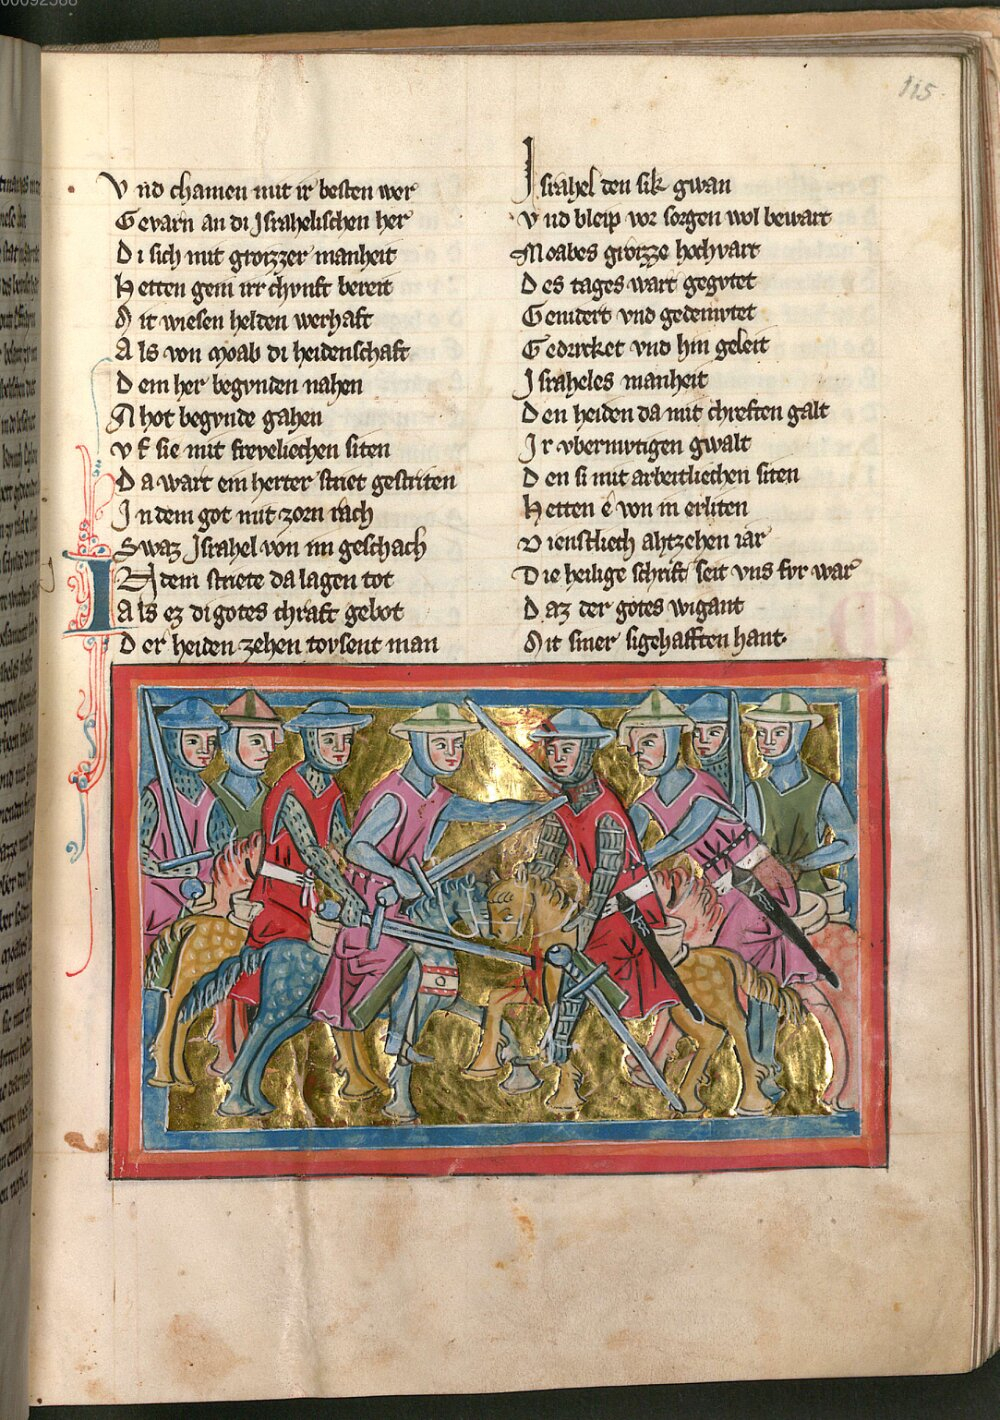 115
V nd chamen mit ir besten wer
G evarn an di Israhelischen her
D i sich mit grozzer manheit
H etten gein irr chvnft bereit
M it wiesen helden werhaft
A ls von Moab di heidenschaft
D em her begvnden nahen
A hot begvnde gahen
V f sie mit frevelichen siten
D a wart ein herter striet gestriten
I n dem got mit zorn rach
S waz Israhel von im geschach
I N dem striete da lagen tot
A ls ez di gotes chraft gebot
D er heiden zehen tovsent man
I srahel den sik gwan
V nd bleip vor sorgen wol bewart
M oabes grozze hochvart
D es tages wart gegvtet
G enidert vnd gedemvtet
G edrvcket vnd hin geleit
I sraheles manheit
D en heiden da mit chreften galt
I r vbermvtigen gwalt
D en si mit arbeitlichen siten
H etten e von in erliten
D ienstliech ahtzehen iar
D ie heilige schrift seit vns fvr war
D az der gotes wigant
M it siner sigehafften hant